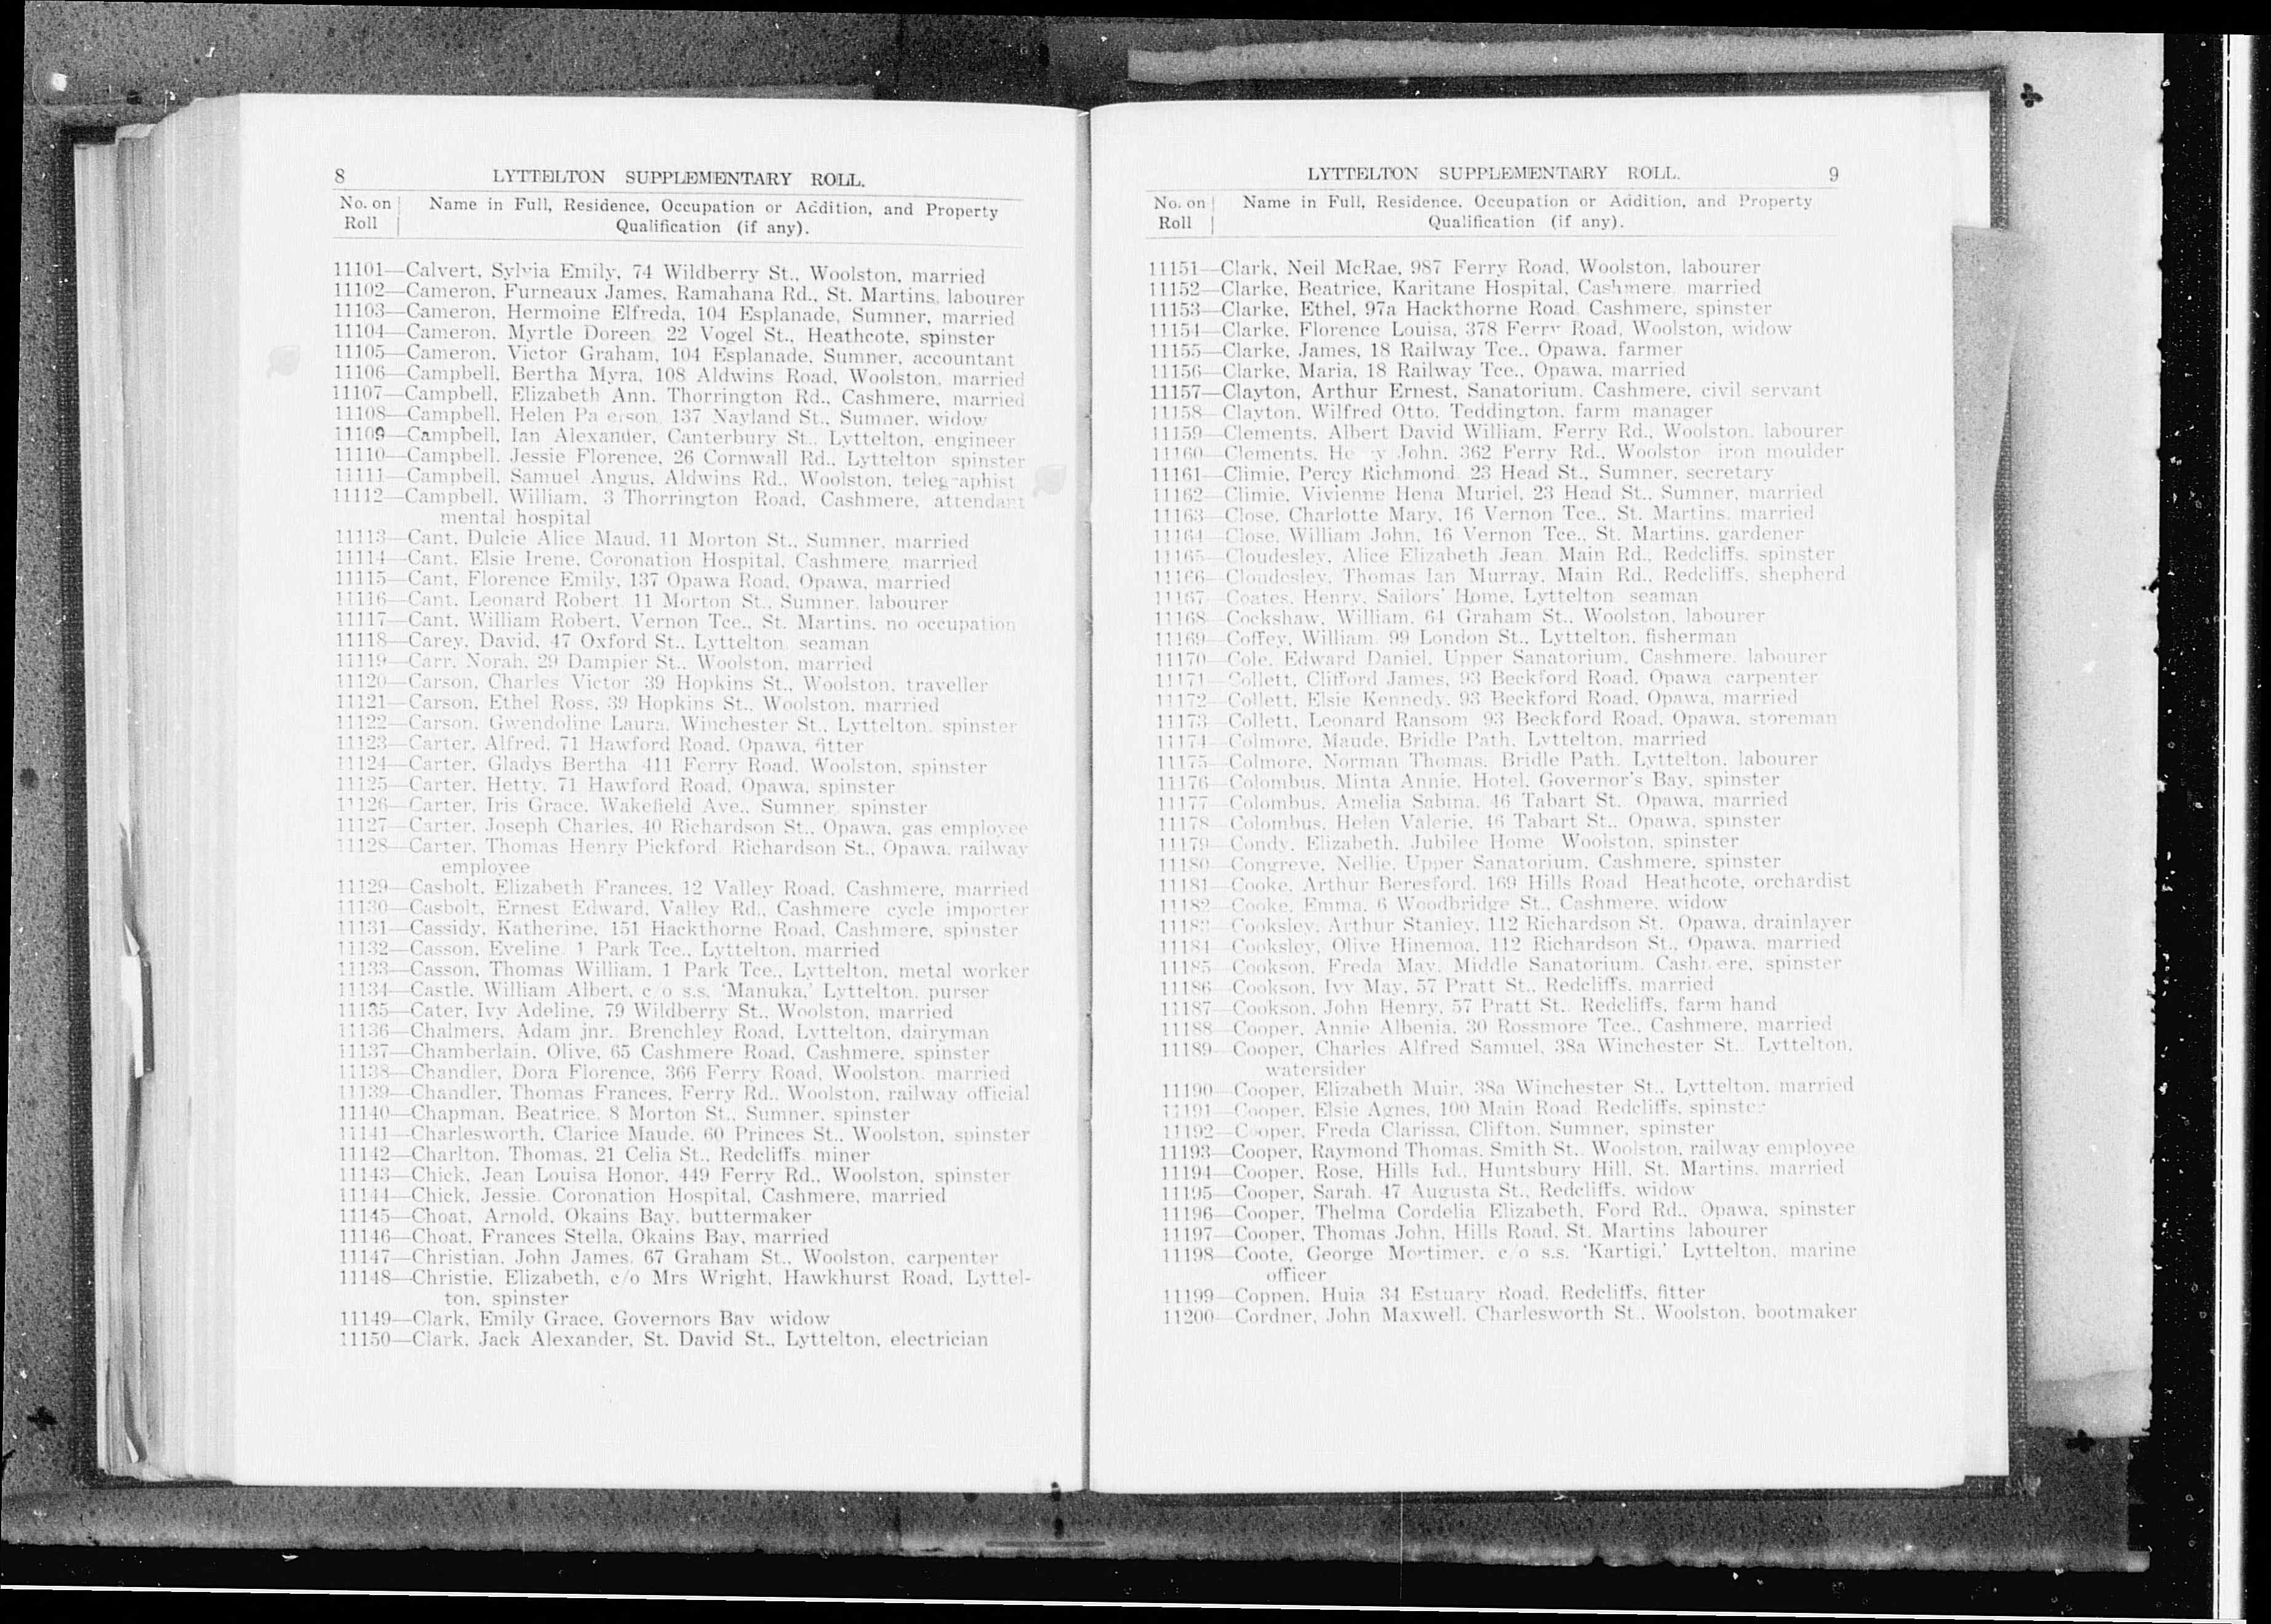 8 LYTTELTON SUPPLEMENTARY ROLL.
No. on Roll | Name in Full, Residence, Occupation or Addition, and Property
Qualification (if any).
11101—Calvert, Sylvia Emily, 74 Wildberry St., Woolston, married
11102—Cameron, Furneaux James, Ramahana Rd., St. Martins, labourer
11103—Cameron, Hermoine Elfreda, 104 Esplanade, Sumner, married
11104—Cameron, Myrtle Doreen, 22 Vogel St., Heathcote, spinster
11105—Cameron, Victor Graham, 104 Esplanade, Sumner, accountant
11106—Campbell, Bertha Myra, 108 Aldwins Road, Woolston, married
11107—Campbell, Elizabeth Ann, Thorrington Rd., Cashmere, married
11108—Campbell, Helen 137 Nayland St., Sumner, widow
11109—Campbell, Ian Alexander, Canterbury St., Lyttelton, engineer
11110—Campbell, Jessie Florence, 26 Cornwall Rd., Lyttelton spinster
11111—Campbell, Samuel Angus, Aldwins Rd., Woolston, telegraphist
11112—Campbell, William, 3 Thorrington Road, Cashmere, attendant
mental hospital
11113—Cant, Dulcie Alice Maud, 11 Morton St., Sumner, married
11114—Cant, Elsie Irene, Coronation Hospital, Cashmere, married
11115—Cant, Florence Emily, 137 Opawa Road, Opawa, married
11116—Cant, Leonard Robert, 11 Morton St., Sumner, labourer
11117—Cant, William Robert, Vernon Tce., St. Martins, no occupation
11118—Carey, David, 47 Oxford St., Lyttelton, seaman
11119—Carr, Norah, 29 Dampier St., Woolston, married
11120—Carson, Charles Victor 39 Hopkins St., Woolston, traveller
11121—Carson, Ethel Ross, 39 Hopkins St., Woolston, married
11122—Carson, Gwendoline Laura, Winchester St., Lyttelton, spinster
11123—Carter, Alfred, 71 Hawford Road, Opawa, fitter
11124—Carter, Gladys Bertha 411 Ferry Road, Woolston, spinster
11125—Carter, Hetty, 71 Hawford Road, Opawa, spinster
11126—Carter, Iris Grace, Wakefield Ave., Sumner, spinster
11127—Carter, Joseph Charles, 40 Richardson St., Opawa, gas employee
11128—Carter, Thomas Henry Pickford Richardson St., Opawa, railway
employee
11129—Casbolt, Elizabeth Frances, 12 Valley Road, Cashmere, married
11130—Casbolt, Ernest Edward, Valley Rd., Cashmere cycle importer
11131—Cassidy, Katherine, 151 Hackthorne Road, Cashmere, spinster
11132—Casson, Eveline, 1 Park Tce., Lyttelton, married
11133—Casson, Thomas William, 1 Park Tce., Lyttelton, metal worker
11134—Castle, William Albert, c/o s.s. 'Manuka,' Lyttelton, purser
11135—Cater, Ivy Adeline, 79 Wildberry St., Woolston, married
11136—Chalmers, Adam jnr., Brenchley Road, Lyttelton, dairyman
11137—Chamberlain, Olive, 65 Cashmere Road, Cashmere, spinster
11138—Chandler, Dora Florence, 366 Ferry Road, Woolston, married
11139—Chandler, Thomas Frances, Ferry Rd., Woolston, railway official
11140—Chapman, Beatrice, 8 Morton St., Sumner, spinster
11141—Charlesworth, Clarice Maude, 60 Princes St., Woolston, spinster
11142—Charlton, Thomas, 21 Celia St., Redcliffs, miner
11143—Chick, Jean Louisa Honor, 449 Ferry Rd., Woolston, spinster
11144—Chick, Jessie, Coronation Hospital, Cashmere, married
11145—Choat, Arnold, Okains Bay, buttermaker
11146—Choat, Frances Stella, Okains Bay, married
11147—Christian, John James, 67 Graham St., Woolston, carpenter
11148—Christie, Elizabeth, c/o Mrs Wright, Hawkhurst Road, Lyttel-
ton, spinster
11149—Clark, Emily Grace, Governors Bay widow
11150—Clark, Jack Alexander, St. David St., Lyttelton, electrician
LYTTELTON SUPPLEMENTARY ROLL. 9
No. on Roll | Name in Full, Residence, Occupation or Addition, and Property
Qualification (if any).
11151—Clark, Neil McRae, 987 Ferry Road, Woolston, labourer
11152—Clarke, Beatrice, Karitane Hospital, Cashmere, married
11153—Clarke, Ethel, 97a Hackthorne Road, Cashmere, spinster
11154—Clarke, Florence Louisa, 378 Ferry Road, Woolston, widow
11155—Clarke, James, 18 Railway Tce., Opawa, farmer
11156—Clarke, Maria, 18 Railway Tce., Opawa, married
11157—Clayton, Arthur Ernest, Sanatorium, Cashmere, civil servant
11158—Clayton, Wilfred Otto, Teddington, farm manager
11159—Clements, Albert David William, Ferry Rd., Woolston, labourer
11160—Clements, John, 362 Ferry Rd., Woolston iron moulder
11161—Climie, Percy Richmond, 23 Head St., Sumner, secretary
11162—Climie, Vivienne Hena Muriel, 23 Head St., Sumner, married
11163—Close, Charlotte Mary, 16 Vernon Tce., St. Martins, married
11164—Close, William John, 16 Vernon Tce., St. Martins, gardener
11165—Cloudesley, Alice Elizabeth Jean, Main Rd., Redcliffs, spinster
11166—Cloudesley, Thomas Ian Murray, Main Rd., Redcliffs, shepherd
11167—Coates, Henry, Sailors' Home, Lyttelton seaman
11168—Cockshaw, William, 64 Graham St., Woolston, labourer
11169—Coffey, William, 99 London St., Lyttelton, fisherman
11170—Cole, Edward Daniel, Upper Sanatorium, Cashmere, labourer
11171—Collett, Clifford James, 93 Beckford Road, Opawa carpenter
11172—Collett, Elsie Kennedy, 93 Beckford Road, Opawa, married
11173—Collett, Leonard Ransom, 93 Beckford Road, Opawa, storeman
11174—Colmore, Maude, Bridle Path, Lyttelton, married
11175—Colmore, Norman Thomas, Bridle Path, Lyttelton, labourer
11176—Colombus, Minta Annie, Hotel, Governor's Bay, spinster
11177—Colombus, Amelia Sabina, 46 Tabart St., Opawa, married
11178—Colombus, Helen Valerie, 46 Tabart St., Opawa, spinster
11179—Condy, Elizabeth, Jubilee Home, Woolston, spinster
11180—Congreve, Nellie, Upper Sanatorium, Cashmere, spinster
11181—Cooke, Arthur Beresford, 169 Hills Road Heathcote, orchardist
11182—Cooke, Emma, 6 Woodbridge St., Cashmere, widow
11183—Cooksley, Arthur Stanley, 112 Richardson St., Opawa, drainlayer
11184—Cooksley, Olive Hinemoa, 112 Richardson St., Opawa, married
11185—Cookson, Freda May, Middle Sanatorium, Cashmere, spinster
11186—Cookson, Ivy May, 57 Pratt St., Redcliffs, married
11187—Cookson, John Henry, 57 Pratt St., Redcliffs, farm hand
11188—Cooper, Annie Albenia, 30 Rossmore Tce., Cashmere, married
11189—Cooper, Charles Alfred Samuel, 38a Winchester St., Lyttelton,
watersider
11190—Cooper, Elizabeth Muir, 38a Winchester St., Lyttelton, married
11191—Cooper, Elsie Agnes, 100 Main Road, Redcliffs, spinster
11192—Cooper, Freda Clarissa, Clifton, Sumner, spinster
11193—Cooper, Raymond Thomas, Smith St., Woolston, railway employee
11194—Cooper, Rose, Hills Rd., Huntsbury Hill, St. Martins, married
11195—Cooper, Sarah, 47 Augusta St., Redcliffs, widow
11196—Cooper, Thelma Cordelia Elizabeth, Ford Rd., Opawa, spinster
11197—Cooper, Thomas John, Hills Road, St. Martins labourer
11198—Coote, George Mortimer, c/o s.s. 'Kartigi,' Lyttelton, marine
officer
11199—Coppen, Huia 34 Estuary Road, Redcliffs, fitter
11200—Cordner, John Maxwell, Charlesworth St., Woolston, bootmaker